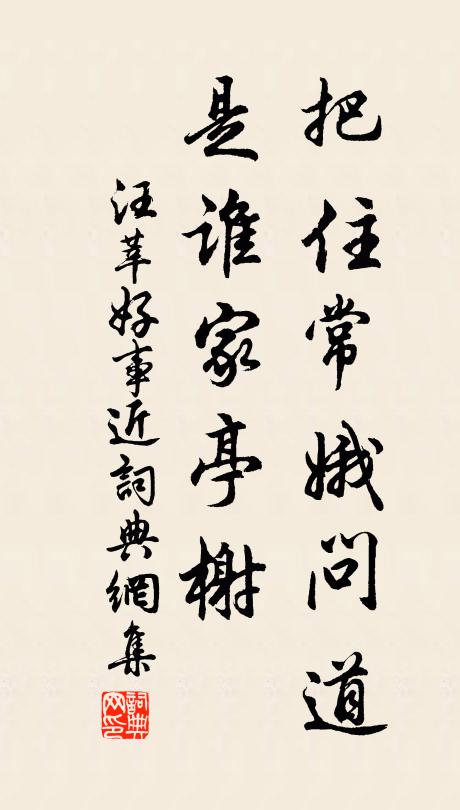 把住常娥問道
是誰家亭榭
汪莘好事近詞典網集
詞典網印